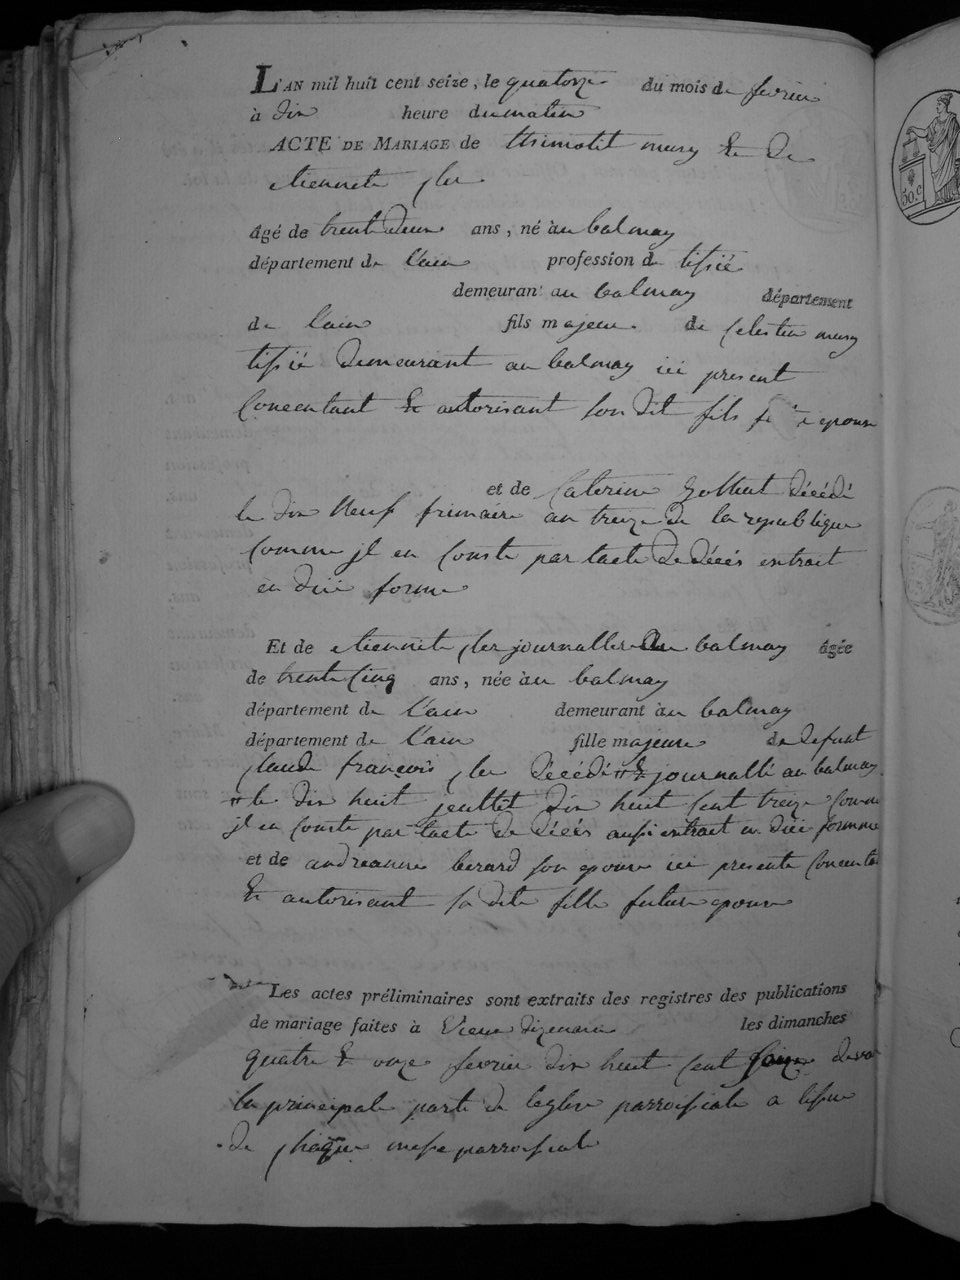 L'AN mil huit cent seize, le quatorze du mois de fevrier
à dix heure du matin
ACTE DE MARIAGE de thimotét mury Et De
etiennete
âgé de trente Deux ans, né au balmay
département de L'ain profession de tissié
demeurant au balmay département
de Lain fils majeur de Celestin mury
tissié Demeurant au balmay ici present
Concentant Et autorisant Son Dit fils epoux
et de Caterine Décédé
le dix Neuf frimaire an treize de la republique
Comme jl en Conste par lacte De Décés extrait
en düe forme
Et de etiennete journalliere Au balmay âgée
de trente Cinq ans, née au balmay
département de L'ain demeurant au balmay
département de L'ain fille majeure de Defunt
Claude françois Décédé # Et journallié au balmay
# le dix huit jeullet dix huit Cent treize Comme
jl en Conste par lacte de Décés aussi extrait en düe forme
et de andreanne berard son epouse ici presente
Et autorisant sa dite fille future epouse
Les actes préliminaires sont extraits des registres des publications
de mariage faites à Vieux dizenave les dimanches
quatre Et onze fevrier dix huit Cent Saize
la principale porte de Leglise parroissiale a lissue
de Chaque messe parroissiale
50.c